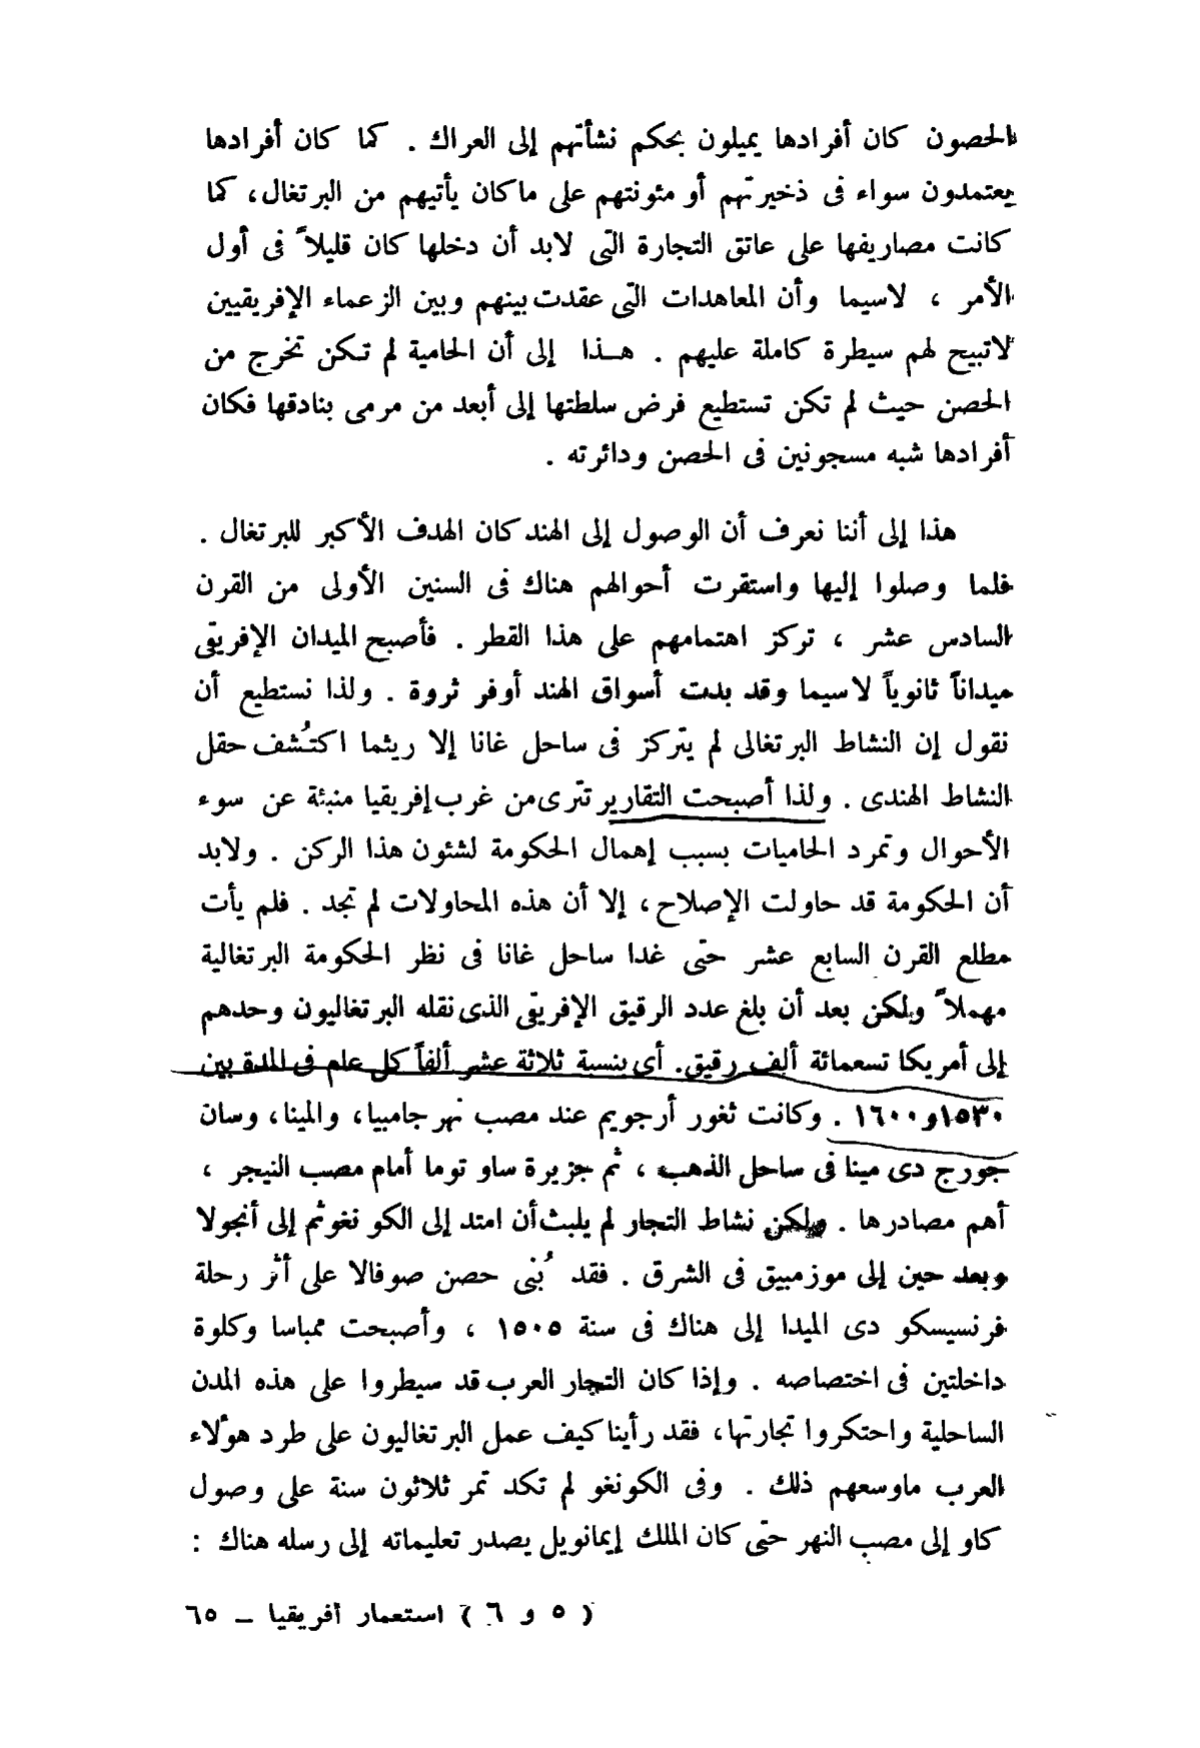 الحصون كان أفرادها يميلون بحكم نشأتهم إلى العراك . كما كان أفرادها
يعتمدون سواء فى ذخيرتهم أو مئونتهم على ما كان يأتيهم من البرتغال، كما
كانت مصاريفها على عاتق التجارة التى لابد أن دخلها كان قليلاً فى أول
الأمر ، لاسيما وأن المعاهدات التى عقدت بينهم وبين الزعماء الإفريقيين
لاتبيح لهم سيطرة كاملة عليهم . هـذا إلى أن الحامية لم تكن تخرج من
الحصن حيث لم تكن تستطيع فرض سلطتها إلى أبعد من مرمى بنادقها فكان
أفرادها شبه مسجونين فى الحصن ودائرته .
هذا إلى أننا نعرف أن الوصول إلى الهند كان الهدف الأكبر للبرتغال .
فلما وصلوا إليها واستقرت أحوالهم هناك فى السنين الأولى من القرن
السادس عشر ، تركز اهتمامهم على هذا القطر . فأصبح الميدان الإفريقى
ميداناً ثانوياً لاسيما وقد بدت أسواق الهند أوفر ثروة . ولذا نستطيع أن
نقول إن النشاط البرتغالى لم يتركز فى ساحل غانا إلا ريثما اكتُشف حقل
النشاط الهندى . ولذا أصبحت التقارير تترى من غرب إفريقيا منبئة عن سوء
الأحوال وتمرد الحاميات بسبب إهمال الحكومة لشئون هذا الركن . ولابد
أن الحكومة قد حاولت الإصلاح ، إلا أن هذه المحاولات لم تجد . فلم يأت
مطلع القرن السابع عشر حتى غدا ساحل غانا فى نظر الحكومة البرتغالية
مهملاً ولكن بعد أن بلغ عدد الرقيق الإفريقى الذى نقله البرتغاليون وحدهم
إلى أمريكا تسعمائة ألف رقيق. أى بنسبة ثلاثة عشر ألفاً كل عام فى المدة بين
١٥٣٠و١٦٠٠ . وكانت ثغور أرجويم عند مصب نهر جامبيا، والمينا، وسان
جورج دى مينا فى ساحل الذهب ، ثم جزيرة ساو توما أمام مصب النيجر ،
أهم مصادرها . ولكن نشاط التجار لم يلبث أن امتد إلى الكونغو ثم إلى أنجولا
وبعد حين إلى موزمبيق فى الشرق . فقد بُنى حصن صوفالا على أثر رحلة
فرنسيسكو دى الميدا إلى هناك فى سنة ١٥٠٥ ، وأصبحت ممباسا وكلوة
داخلتين فى اختصاصه . وإذا كان التجار العرب قد سيطروا على هذه المدن
الساحلية واحتكروا تجارتها، فقد رأينا كيف عمل البرتغاليون على طرد هؤلاء
العرب ماوسعهم ذلك . وفى الكونغو لم تكد تمر ثلاثون سنة على وصول
كاو إلى مصب النهر حتى كان الملك إيمانويل يصدر تعليماته إلى رسله هناك :
( ٥ و ٦ ) استعمار أفريقيا – ٦٥